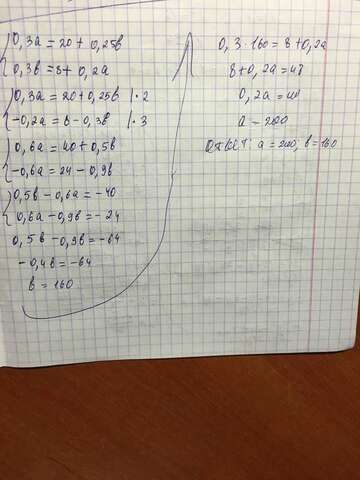 0,3a = 20 + 0,25b
0,3b = 8 + 0,2a
0,3a = 20 + 0,25b | · 2
-0,2a = 8 - 0,3b | · 3
0,6a = 40 + 0,5b
-0,6a = 24 - 0,9b
0,5b - 0,6a = -40
0,6a - 0,9b = -24
0,5b - 0,9b = -64
-0,4b = -64
b = 160
0,3 · 160 = 8 + 0,2a
8 + 0,2a = 48
0,2a = 40
a = 200
Ответ: a = 200; b = 160